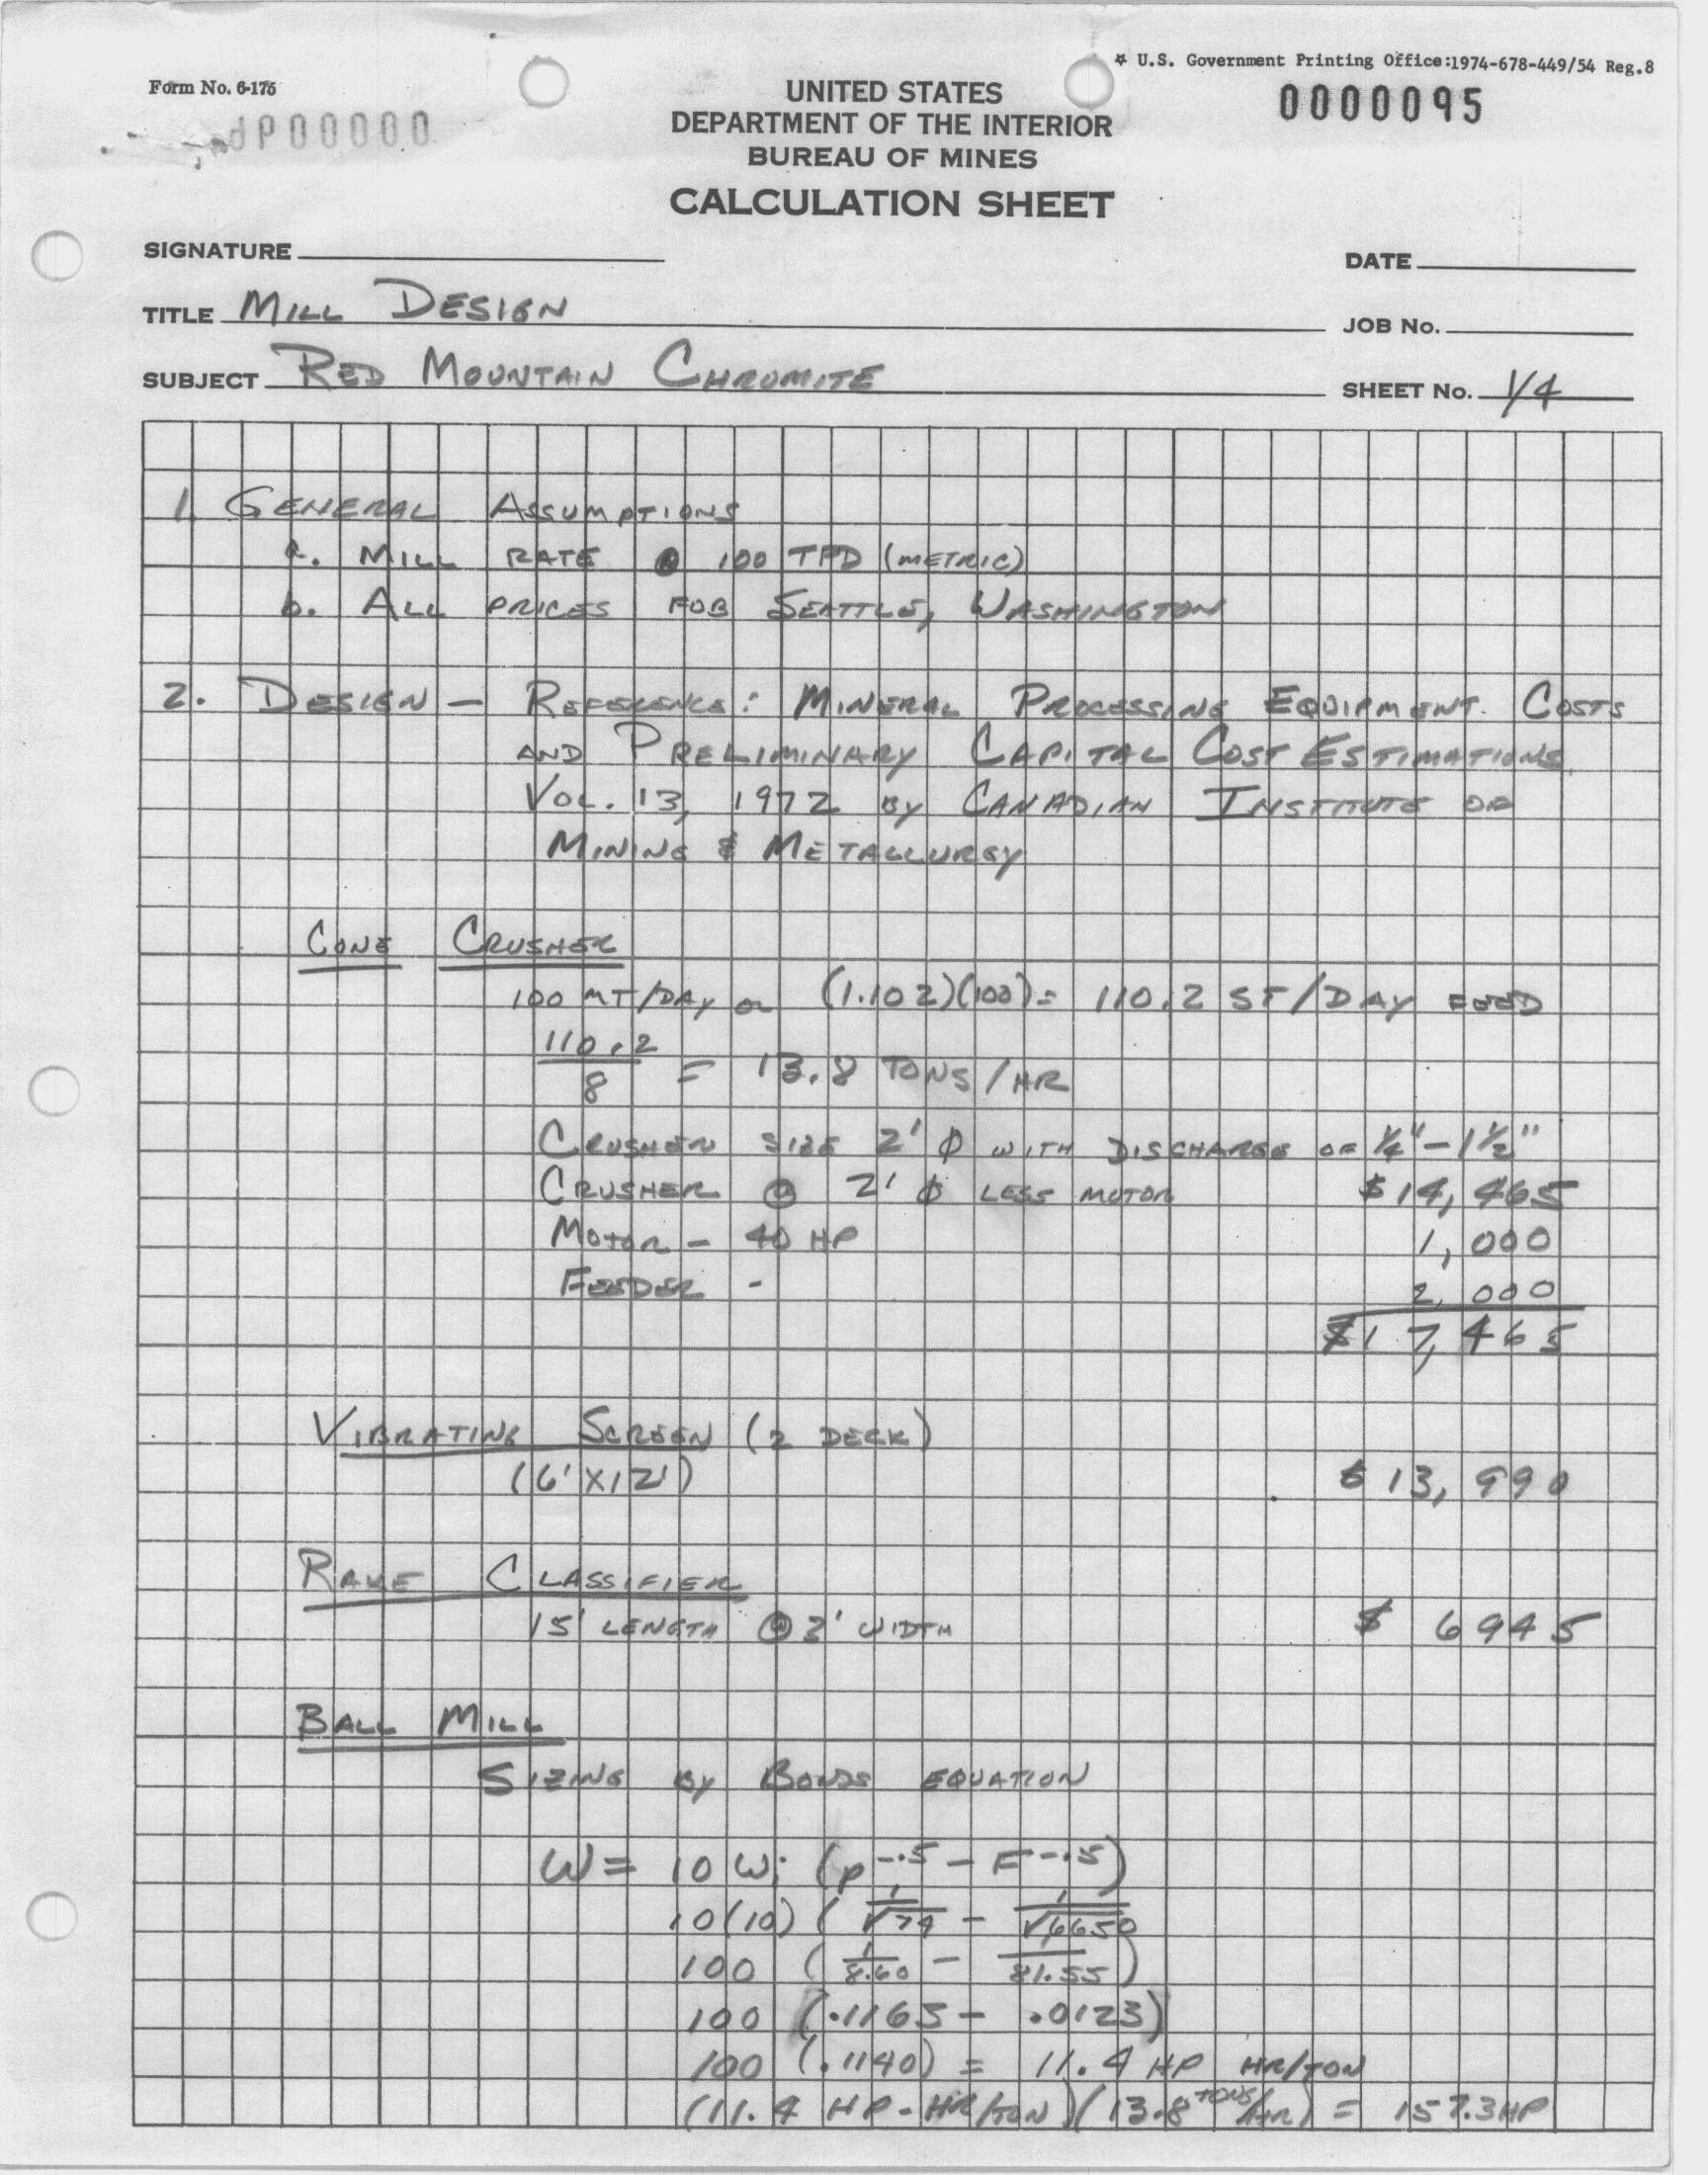 * U.S. Government Printing Office:1974-678-449/54 Reg.8
Form No. 6-175
P00000
0000095
UNITED STATES
DEPARTMENT OF THE INTERIOR
BUREAU OF MINES
CALCULATION SHEET
SIGNATURE
DATE
TITLE MILL DESIGN
JOB No.
SUBJECT RED MOUNTAIN CHROMITE
SHEET No. 1/4
1. GENERAL ASSUMPTIONS
a. MILL RATE @ 100 TPD (METRIC)
b. ALL PRICES FOB SEATTLE, WASHINGTON
2. DESIGN — REFERENCE: MINERAL PROCESSING EQUIPMENT COSTS
AND PRELIMINARY CAPITAL COST ESTIMATIONS,
VOL. 13, 1972 BY CANADIAN INSTITUTE OF
MINING & METALLURGY
CONE CRUSHER
100 MT/DAY or (1.102)(100) = 110.2 ST/DAY FEED
110.2
8 = 13.8 TONS/HR
CRUSHER SIZE 2' Φ WITH DISCHARGE OF 1/4" - 1 1/2"
CRUSHER @ 2' Φ LESS MOTOR $14,465
MOTOR - 40 HP 1,000
FEEDER - 2,000
$17,465
VIBRATING SCREEN (2 DECK)
(6' X 12') $13,990
RAKE CLASSIFIER
15' LENGTH @ 3' WIDTH $ 6945
BALL MILL
SIZING BY BONDS EQUATION
W = 10 Wi (P^-.5 - F^-.5)
10(10) ( 1/√74 - 1/√6650
100 ( 1/8.60 - 1/81.55 )
100 (.1163 - .0123)
100 (.1140) = 11.4 HP HR/TON
(11.4 HP-HR/TON)(13.8 TONS/HR) = 157.3HP